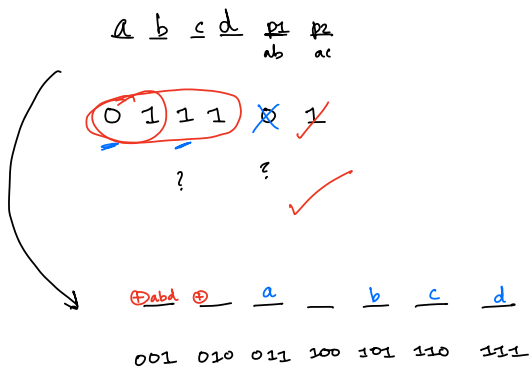 a b c d p1 p2
ab ac
0 1 1 1 0 1
? ?
⊕abd ⊕ a b c d
001 010 011 100 101 110 111